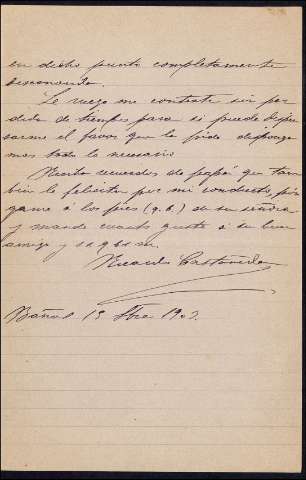 en dicho punto completamente
desconocida.
Le ruego me conteste sin per
dida de tiempo para si puede dispen
sarme el favor que le pido disponga
mos todo lo necesario
Reciba recuerdos de papá que tam
bien le felicita por mi conducto, pón
game á los pies (q. b.) de su señora
y mande cuanto guste á su buen
amigo y s s q b s m
Ricardo Castañeda
15 1902.